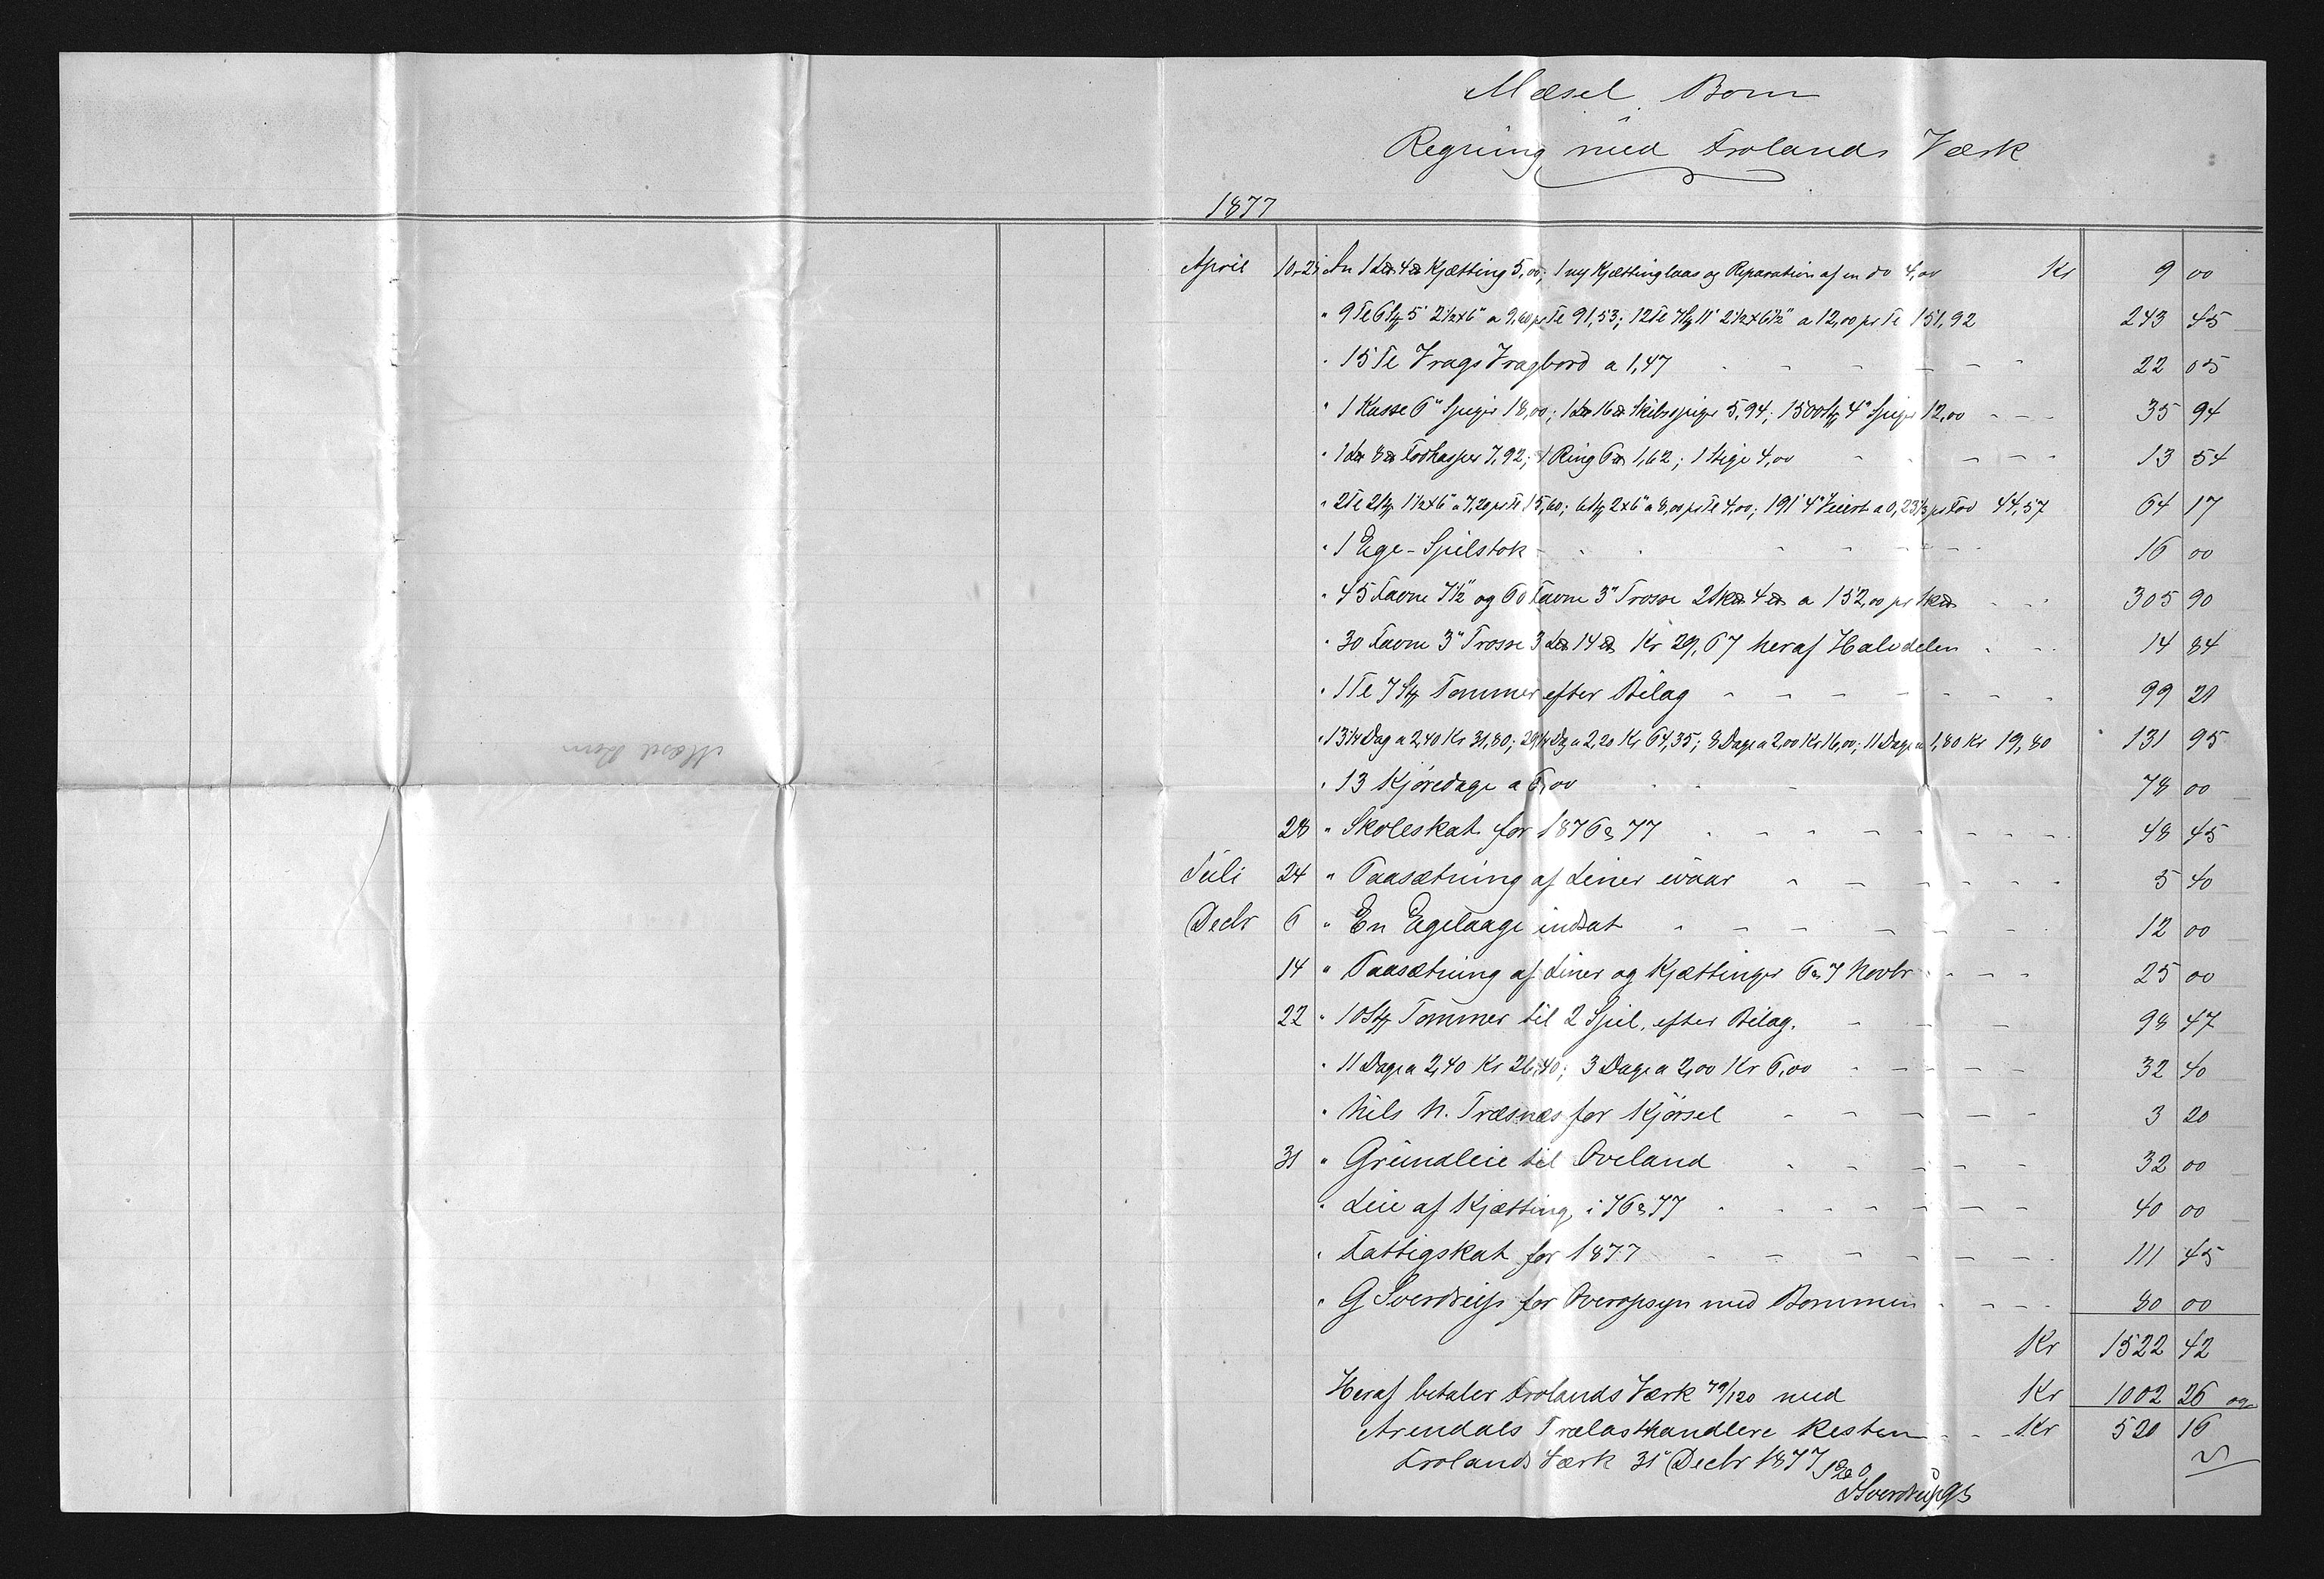 Mæsel Bom
i
Regning med Frolands Værk
1877
April 10-25 An 1 L℔ 4 ℔ Kjætting 5,00; 1 ny Kjættinglaas og Reparation af en do 4,00 Kr 9 00
" 9 Te 6 Stk 5' 2½x6" a 9,60 pr Te 91,53; 12 Te 7 Stk 11' 2½x6½" a 12,00 pr Te 151,92 243 45
" 15 Te Vrags Vragbord a 1,47 22 05
" 1 Kasse 6" Spiger 18,00; 1 L℔ 16 ℔ Skibsspiger 5,94; 1500 Stk 4" Spiger 12,00 35 94
" 1 L℔ 8 ℔ Fodhasper 7,92; 1 Ring 6 ℔ 1,62; 1 Stige 4,00 13 54
" 2 Te 2 Stk 1½x6" a 7,20 pr Te 15,60; 6 Stk 2x6" a 8,00 pr Te 4,00; 191' 4" a 0,23⅓ pr Fod 44,57 64 17
" 1 Ege-Spilstok 16 00
" 45 Favne 7½" og 60 Favne 3" Trosse 2 Sk℔ 4 ℔ a 152,00 pr Sk℔ 305 90
" 30 Favne 3" Trosse 3 L℔ 14 ℔ Kr 29,67 heraf Halvdelen 14 84
" 1 Te 7 Stk Tømmer efter Bilag 99 21
" 13¼ Dag a 2,40 Kr 31,80; 29¼ Dg a 2,20 Kr 64,35; 8 Dage a 2,00 Kr 16,00; 11 Dage a 1,80 Kr 19,80 131 95
" 13 Kjøredage a 6,00 78 00
28 " Skoleskat for 1876 & 77 48 45
Juli 24 " Paasætning af Liner ivaar 5 40
Decbr 6 " En Egelaage indsat 12 00
14 " Paasætning af Liner og Kjættinger 6 & 7 Novbr 25 00
22 " 10 Stk Tømmer til 2 Spil, efter Bilag. 98 47
" 11 Dage a 2,40 Kr 26,40; 3 Dage a 2,00 Kr 6,00 32 40
" Nils N. Træsnæs for Kjørsel 3 20
31 " Grundleie til Oveland 32 00
" Leie af Kjætting i 76 & 77 40 00
" Fattigskat for 1877 111 45
" G Sverdrup for Overopsyn med Bommen 80 00
Kr 1522 42
Heraf betaler Frolands Værk 79/120 med Kr 1002 26 og
Arendals Trælasthandlere Resten Kr 520 16
Frolands Værk 31 Decbr 1877
Sverdrup
Mæsel Bom